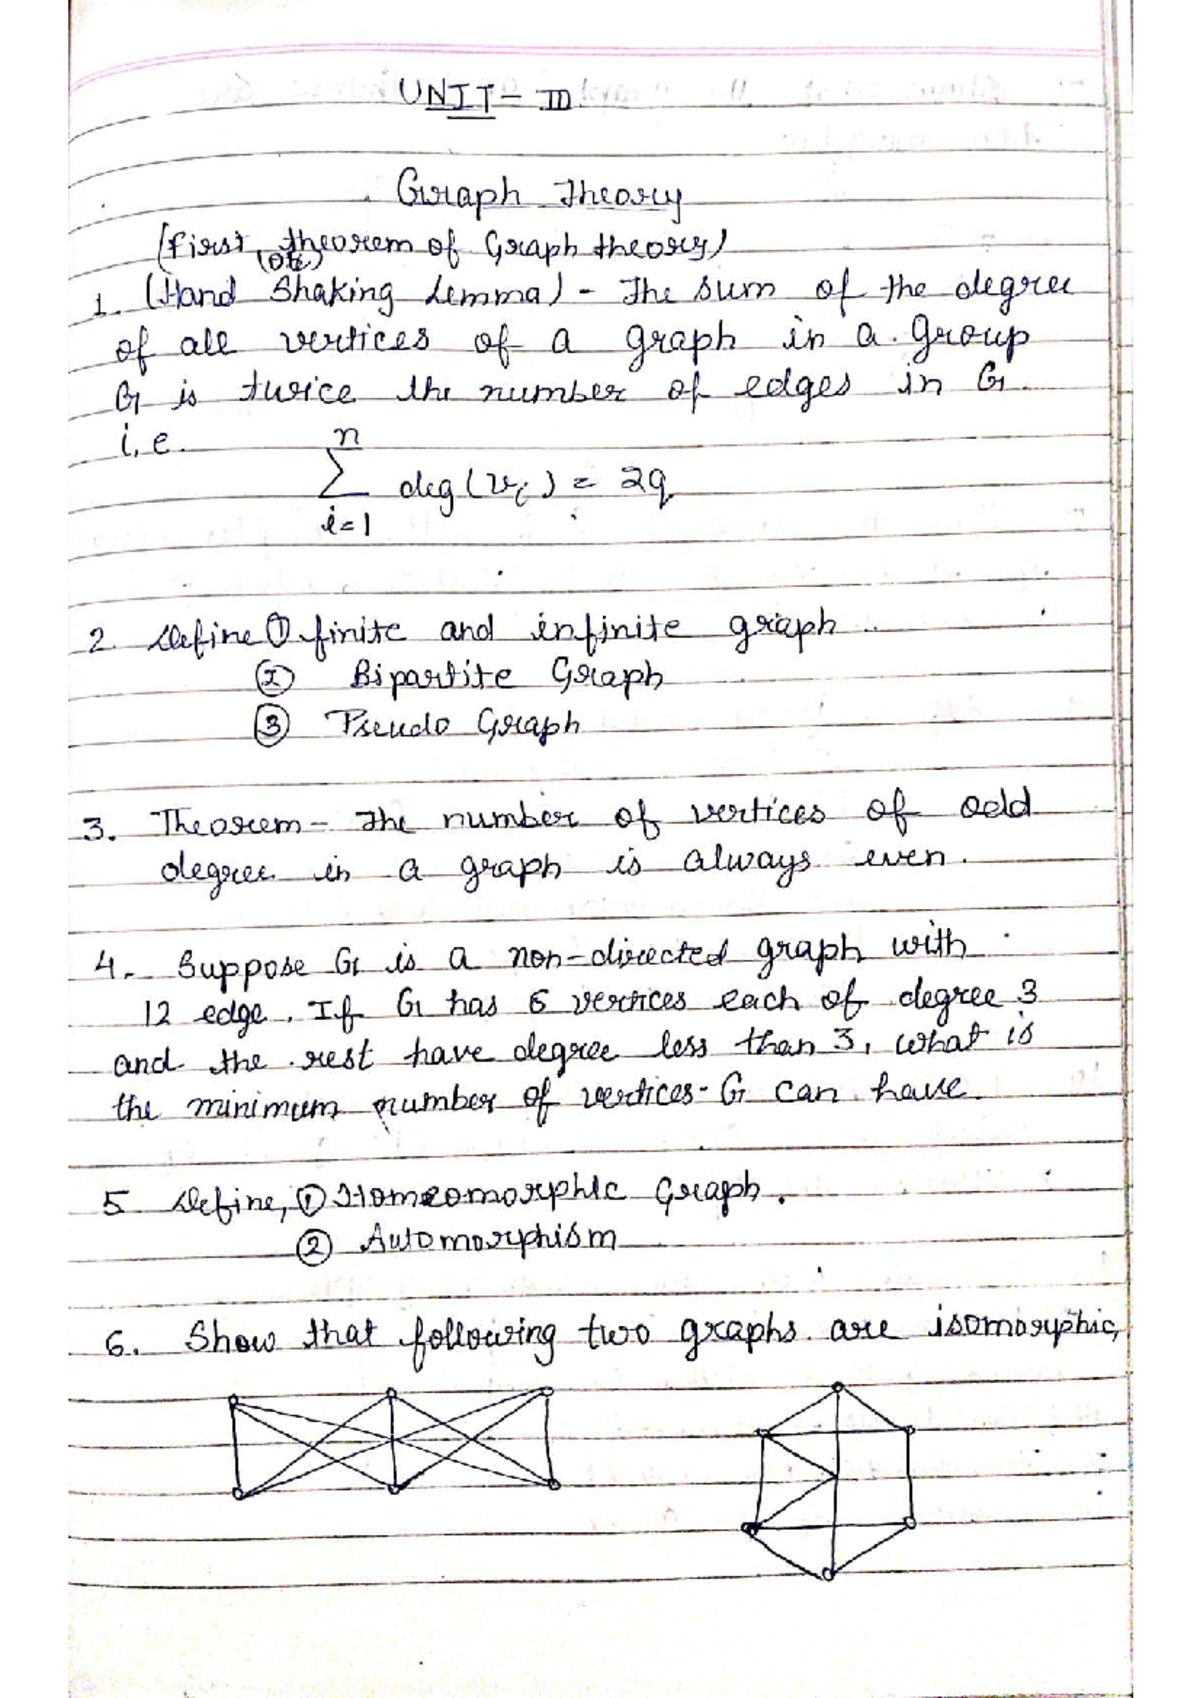 UNIT - III
Graph Theory
(First theorem of Graph theory)
(OR)
1. (Hand Shaking Lemma) - The sum of the degree
of all vertices of a graph in a group
G is twice the number of edges in G.
i.e. n
∑ deg(vi) = 2q
i=1
2. Define ① finite and infinite graph
② Bipartite Graph
③ Pseudo Graph
3. Theorem - The number of vertices of odd
degree in a graph is always even.
4. Suppose G is a non-directed graph with
12 edge. If G has 6 vertices each of degree 3
and the rest have degree less than 3, what is
the minimum number of vertices G can have.
5 Define, ① Homeomorphic Graph.
② Automorphism
6. Show that following two graphs are isomorphic,